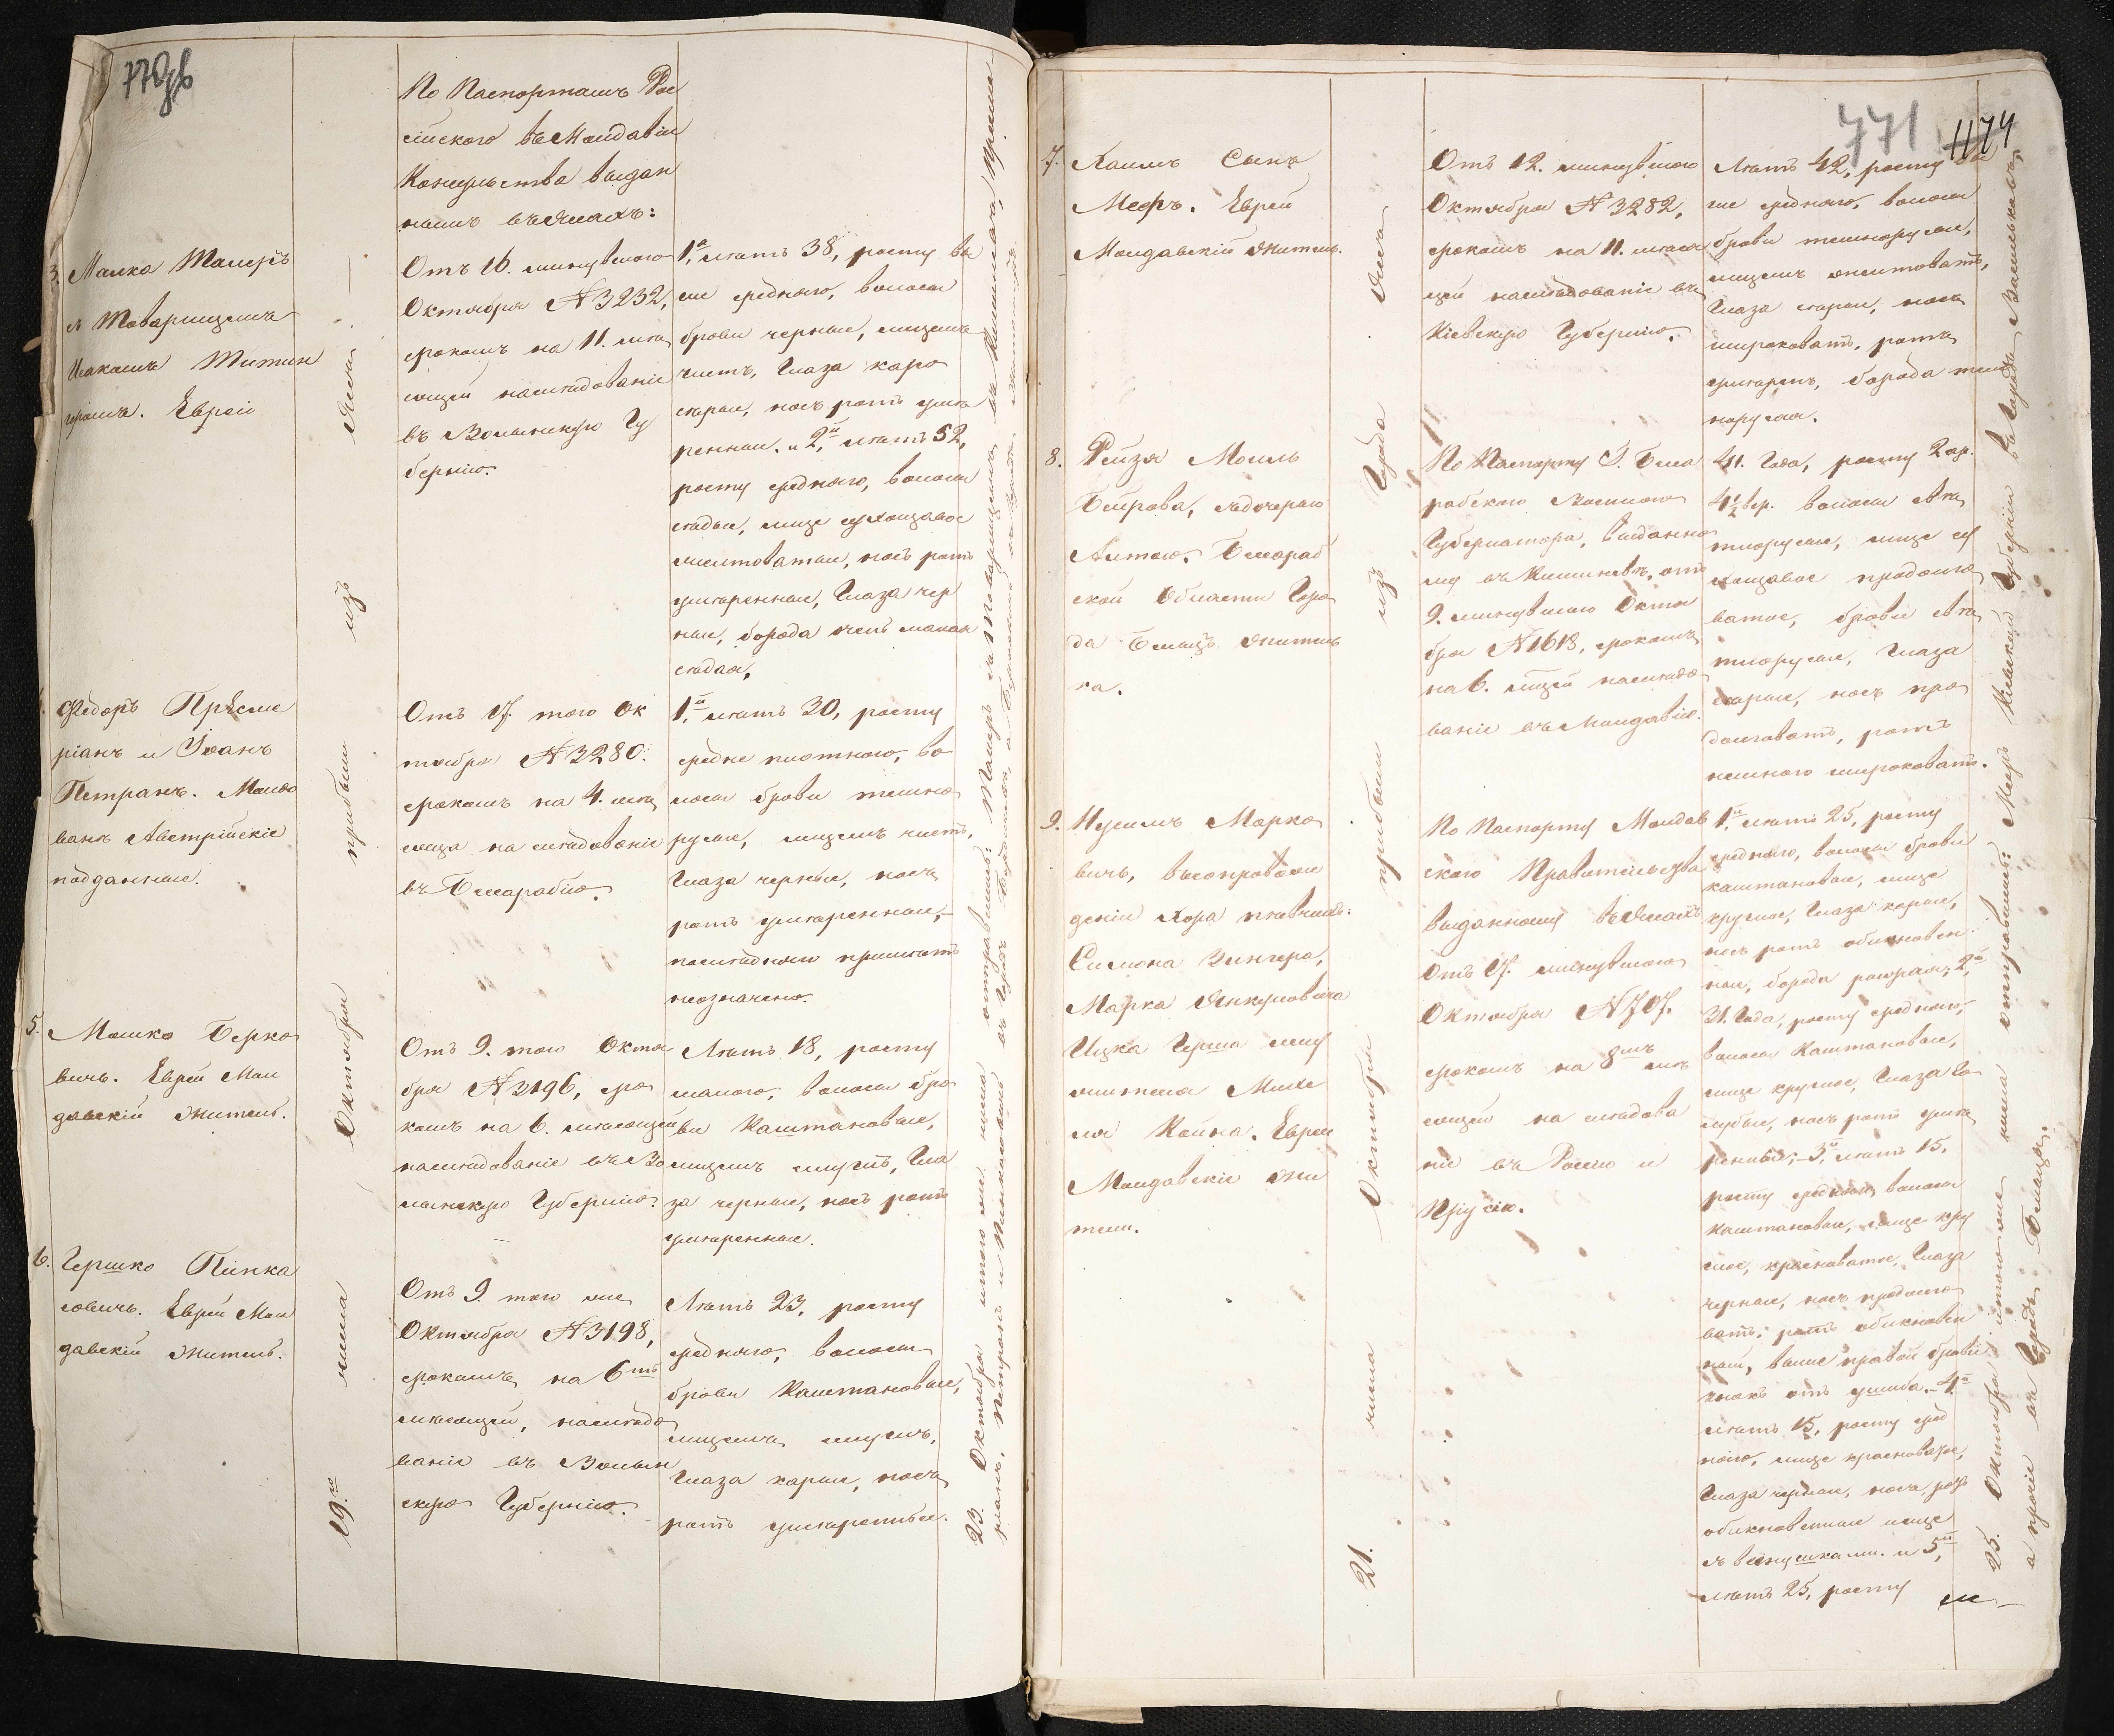 770об
По Паспортамъ Рос
сійского въ Молдавіи
Консульства выдан
нымъ въ Яссахъ:
3. Малка Талеръ
съ Товарищемъ
Ицкомъ Титин
геромъ. Евреи
Отъ 16. минувшаго
Октября № 3232,
срокомъ на 11. мѣся
цовъ наслѣдованіе
въ Волынскую Гу
бернію.
1.я, лѣтъ 38, росту вы
ше средняго, волосы
брови черные, лицемъ
чистъ, Глаза каро
сѣрые, носъ ротъ умѣ
ренные. и 2.й, лѣтъ 52,
росту средняго, волосы
сѣдые, лице сухощавое
желтоватое, носъ ротъ
умѣренные, Глаза чер
ные, борода очень малая
сѣдая,
Федоръ Пръсме
ріанъ и Іоанъ
Петранъ. Молдо
ване Австрійскіе
подданные.
Отъ 17. того Ок
тября № 3280.
срокомъ на 4. мѣся
мѣсяца на слѣдованіе
въ Бессарабію.
1.й, лѣтъ 30, росту
средне плотного, во
лосы брови темно
русые, лицемъ чистъ,
Глаза черные, носъ
ротъ умѣренные,—
послѣдняго примѣтъ
неозначено.
5. Мошко Берко
вичь. Еврей Мол
давскій житель.
Отъ 9. того Октя
бря № 3196, сро
комъ на 6. мѣсяцовъ
наслѣдованіе въ Во
лынскую Губернію.
Лѣтъ 18, росту
малого, волосы бро
ви Каштановые,
лицемъ смуглъ, Гла
за черные, носъ ротъ
умѣренные.
6. Гершко Пинка
совичь. Еврей Мол
давскій житель.
Отъ 9. того же
Октября № 3198,
срокомъ на 6ть
мѣсяцовъ, наслѣдо
ваніе въ Волын
скую Губернію.
Лѣтъ 23, росту
средняго, волосы
брови Каштановые,
лицемъ смуглъ,
Глаза карые, носъ
ротъ умѣренные.
19.го числа Октября прибыли изъ Яссъ
23. Октября
771
1174
7. Хаимъ Сынъ
Меєръ. Еврей
Молдавскій житель.
Отъ 12. минувшаго
Октября № 3282,
срокомъ на 11. мѣся
цовъ наслѣдованіе въ
Кіевскую Губернію.
Лѣтъ 42, росту вы
ше средняго, волосы
брови темнорусые,
лицемъ желтоватъ,
Глаза сѣрые, носъ
широковатъ, ротъ
умѣренъ, борода тем
норусая.
8. Рейзя Мошль
Беирова, съ дочерью
Бессараб
ской Области Горо
да Бельцъ житель
ка.
По Паспорту Г. Бесса
рабского Военного
Губернатора, выданно
му въ Кишиневѣ, отъ
9. минувшаго Октя
бря № 1618, срокомъ
на 6. мѣсяцовъ наслѣдо
ваніе въ Молдавію.
41. Года, росту 2 ар.
4½ вер. волосы свѣт
лорусые, лице су
хощавое продолго
ватое, брови свѣт
лорусые, Глаза
сѣрые, носъ про
долговатъ, ротъ
немного широковатъ.
9. Нусимъ Марко
вичь, въ сопрово
жденіи Хора пѣвчихъ:
Симона Зингера,
Марка Янкеловича
Ицка Герша
Койна. Евреи
Молдавскіе жи
тели.
По Паспорту Молдав
ского Правительства
выданному въ Яссахъ
Отъ 17. минувшаго
Октября № 707.
срокомъ на 8мь мѣ
сяцовъ на слѣдова
ніе въ Россію и
Прусію.
1.й, лѣтъ 25, росту
средняго, волосы брови
каштановые, лице
круглое, Глаза карые,
носъ ротъ обыкновен
ные, 2.й
31. Года, росту средняго,
волосы Каштановые,
лице круглое, Глаза Го
лубые, носъ ротъ умѣ
ренные; 3.й лѣтъ 15,
росту средняго, волосы
каштановые, лице кру
глое, красноватое, Глаза
черные, носъ продолго
ватъ, ротъ обыкновен
ный, выше правой брови
знакъ отъ ушиба. 4.й
лѣтъ 15, росту сред
няго, лице красноватое,
Глаза черные, носъ, ротъ
обыкновенные лице
съ веснушками. и 5.й
лѣтъ 25, росту
21. числа Октября прибыли изъ Города Яссъ
25. Октября отправились: Меєръ Кіевской Губерніи въ Городъ Васильковъ,
а прочіе въ Городъ Бельцы.